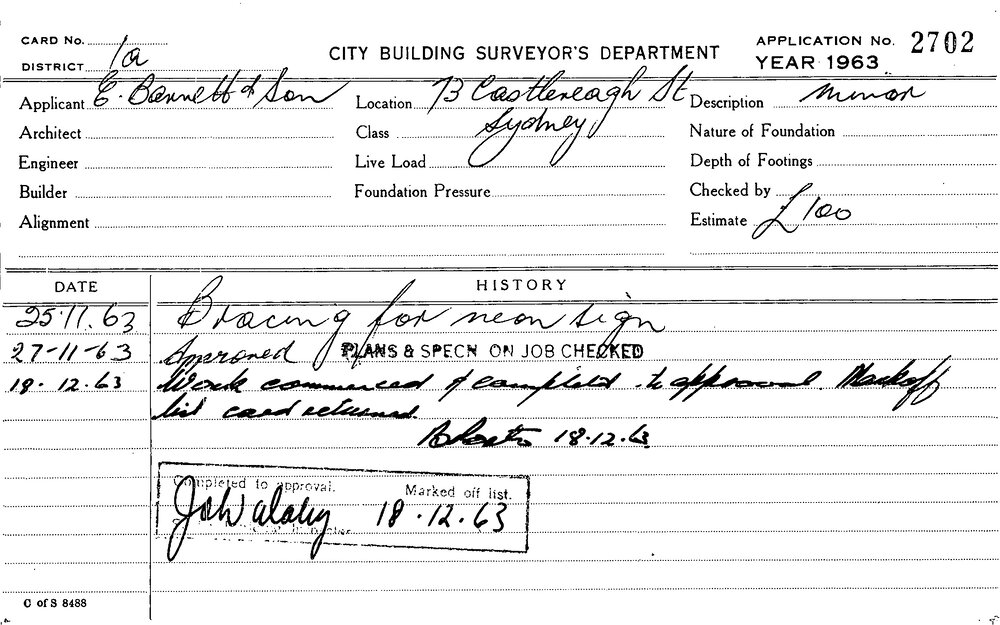 CARD No.
CITY BUILDING SURVEYOR'S DEPARTMENT
APPLICATION No. 2702
DISTRICT 1a
YEAR 1963
Applicant E. Bannett & Son
Location 73 Castlereagh St
Sydney
Description Minor
Architect
Class
Nature of Foundation
Engineer
Live Load
Depth of Footings
Builder
Foundation Pressure
Checked by
Alignment
Estimate £100
DATE
HISTORY
25.11.63 Bracing for neon sign
27-11-63 Approved PLANS & SPECN ON JOB CHECKED
18.12.63 Work commenced & completed to approval. Markoff
list card returned.
18.12.63
Completed to approval. Marked off list.
18.12.63
C of S 8488